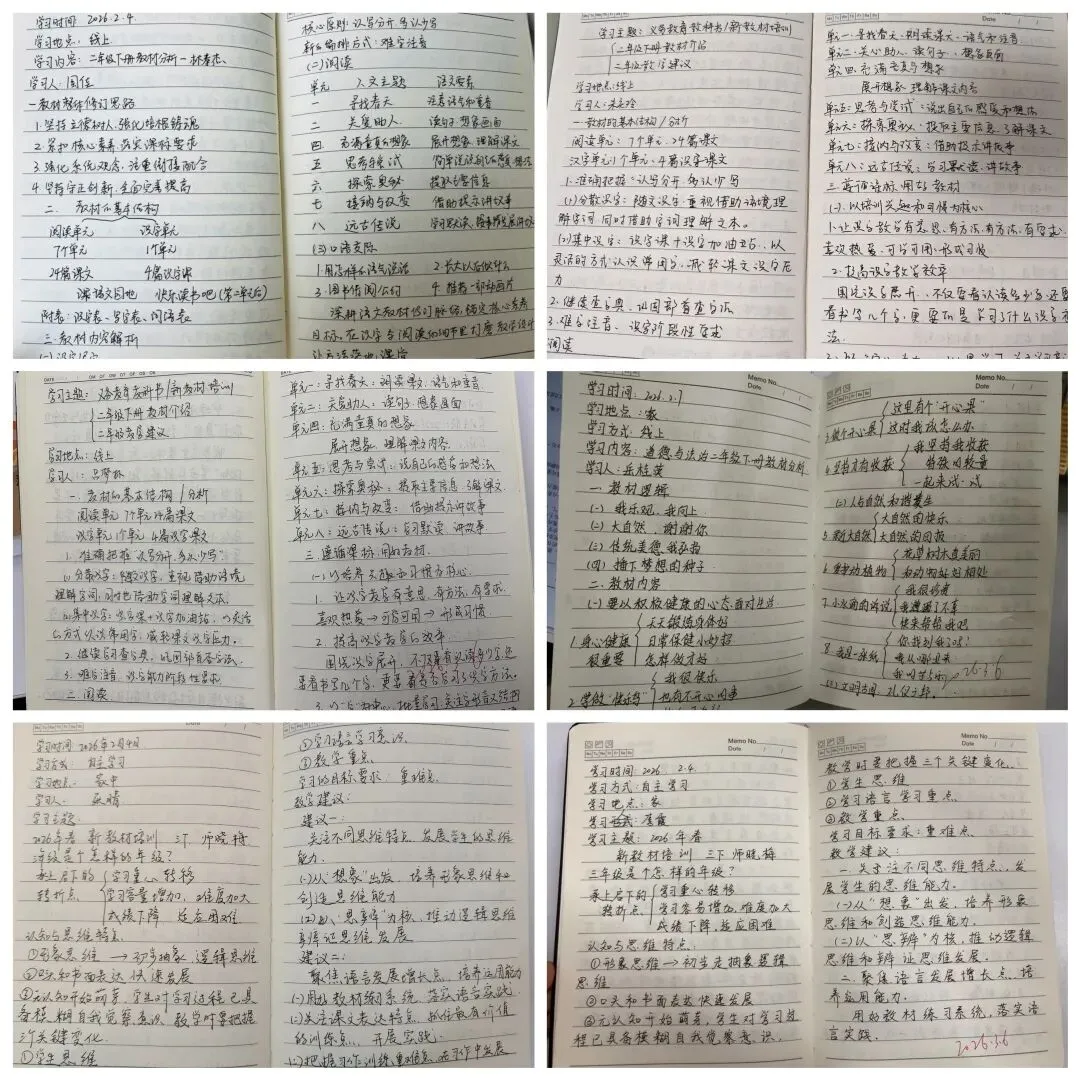 学习时间: 2026.2.4.
学习地点: 线上
学习内容: 二年级下册教材分析—林春花.
学习人: 闫佳
一.教材整体修订思路
1.坚持立德树人, 强化培根铸魂
2.紧扣核心素养 落实课标要求
3.强化系统观念, 注重衔接配合
4.坚持守正创新, 全面完善提高
二. 教材的基本结构
阅读单元 识字单元
7个单元 1个单元
24篇课文 4篇识字课
语文园地 快乐读书吧(第二单元后)
附表: 识字表、写字表、词语表
三.教材内容解析
(一)识字写字
核心原则: 认写分开, 多认少写
新的编排方式: 难字注音
(二)阅读
单元 人文主题 语文要素
一 寻找春天 注意语气和重音
二 关爱助人 读句子 想象画面
四 充满童真的想象 展开想象 理解课文
五 思考与尝试
六 探索奥秘 提取主要信息
七 接纳与改变 借助提示讲故事
八 远古传说
(三)口语交际
1.用怎样的语气说话 2.长大以后做什么
3.图书借阅公约 4.推荐一部动画片
深耕语文教材修订脉络, 锚定核心素养
目标, 在识字与阅读的细节里打磨教学设计
让方法落地课堂
学习主题: 义务教育教科书/新教材培训
二年级下册教材介绍
二年级教学建议
学习地点: 线上
学习人:
一.教材的基本结构/分析
阅读单元: 7个单元, 24篇课文
识字单元1个单元, 4篇识字课文
1.准确把握"认写分开, 多认少写
(1)分散识字: 随文识字, 重视借助语境理
解字词, 同时借助字词理解文本。
(2)集中识字: 识字课+识字加油站, 以
灵活的方式认识常用字, 减轻课文识字压
力
2.继续查字典, 巩固部首查字法
3.难字注音、识字阶段性要求
阅读
单元一: 寻找春天: 朗读课文, 语气和重音
单元二: 关心助人: 读句子、想象画面
单元四: 充满童真与想象
展开想象 理解课文内容
单元五: 思考与尝试: 说出自己的感受和想法
单元六: 探索奥秘: 提取主要信息, 了解课文
单元七: 接纳与改变: 借助提示讲故事
单元八: 远古传说: 学习默读、讲故事
三.遵循课标, 用好教材
(一).以培养兴趣和习惯为核心
1.让识字教学有意思, 有方法, 有方法, 有要求
喜欢热爱→可学可用→形成习惯
2.提高识字教学效率
围绕识字展开, 不仅要看认读多少字, 还要
看书写几个字, 更要的是学习了什么识字方
法.
学习主题: 义务教育教科书/新教材培训
二年级下册教材介绍
二年级教学建议
学习地点: 线上
学习人: 吕梦楠
一.教材的基本结构/分析
阅读单元7个单元24篇课文
识字单元1个单元 4篇识字课文
1.准确把握"认写分开, 多认少写"
(1)分散识字: 随文识字, 重视借助语境
理解字词, 同时也借助字词理解文本.
(2)集中识字: 识字课+识字加油站, 以灵活
的方式认识常用字, 减轻课文识字压力.
2.继续学习查字典, 巩固部首查字法.
3.难字注音: 识字能力阶段性要求
二.阅读
单元一: 寻找春天: 朗读课文, 语气和重音.
单元二: 关爱助人: 读句子, 想象画面
单元四: 充满童真的想象
展开想象 理解课文内容
单元五: 思考与尝试: 说自己的感受和想法
单元六: 探索奥秘: 提取主要信息, 了解课文.
单元七: 接纳与改变: 借助提示讲故事
单元八: 远古传说: 学习默读, 讲故事
三.遵循课标, 用好教材.
(一).以培养兴趣和习惯为核心.
1.让识字教学有意思, 有方法, 有要求
喜欢热爱→可学可用→形成习惯
2.提高识字教学的效率.
围绕识字展开, 不仅要看认读多少字, 还
要看书写几个字, 更要看学习了什么识字方法.
Memo No.
Date / /
学习时间: 2026.2.7
学习地点: 家
学习方式: 线上
学习内容: 道德与法治二年级下册教材分析
学习人: 岳桂英
一.教材逻辑
(一)我乐观, 我向上
(二)大自然, 谢谢你
(三)传统美德我弘扬
(四)播下梦想的种子
二.教材内容
(一)要以积极健康的心态面对生活
1.身心健康很重要
天天锻炼身体好
日常保健小妙招
怎样做才好
2.学做"快乐鸟"
我很快乐
也有不开心的事
Memo No.
Date / /
3.做个开心果
这里有个"开心果"
这时我该怎么办
4.坚持才有收获
我坚持我收获
特殊的较量
一起来试一试
(二)人与自然和谐共生
5.我爱大自然
大自然的快乐
大自然的回报
6.爱护动植物
花草树木真美丽
和动物好好相处
7.小水滴的诉说
我很珍贵
我遭遇了不幸
快来帮帮我吧
8.我是一张纸
你找到我了吗?
我从哪里来
2026.3.6
学习时间: 2026年2月4日
学习方式: 自主学习
学习地点: 家中
学习人:
学习主题:
2026年春 新教材培训 三下 师晓梅
三年级是个怎样的年级?
承上启下的转折点
学习重心转移
学习容量增加, 难度加大
成绩下降 适应困难
认知与思维特点
①形象思维→初步抽象逻辑思维
②口头和书面表达快速发展
③元认知开始萌芽, 学生对学习过程已具
备模糊自我觉察意识, 教学时要把握
三个关键变化.
①学生思维
②学习语言学习意识.
③教学重点.
学习的目标要求: 重难点.
教学建议:
建议一:
关注不同思维特点, 发展学生的思维
能力.
(一)从"想象"出发, 培养形象思维和
创造思维能力
(二)以"思辨"为核, 推动逻辑思维
辩证思维发展
建议二:
聚焦语言发展增长点, 培养运用能力
(一)用好教材练习系统, 落实语言实践.
(二)关注课文表达特点, 抓住最有价值
的训练点, 开展实践.
Memo No.
Date / /
学习时间: 2026. 2.4.
学习方式: 自主学习
学习地点: 家
学习主题: 2026年春
新教材培训 三下 师晓梅
三年级是个怎样的年级?
承上启下的转折点
学习重心转移
学习容易增加, 难度加大
成绩下降, 适应困难
认知与思维特点:
①形象思维→初步走抽象逻辑
思维
②口头和书面表达快速发展
③元认知开始萌芽, 学生对学习过
程已具备模糊自我觉察意识.
Memo No.
Date / /
教学时要把握三个关键变化.
①学生思维
②学习语言学习重点
③教学重点.
学习目标要求: 重难点.
教学建议:
一.关于注不同思维特点, 发
展学生的思维能力.
(一)从"想象"出发, 培养形象
思维和创造思维能力.
(二)从"思辨"为核, 推动逻辑
思维和辨证思维发展.
二.聚焦语言发展增长点, 培
养应用能力.
用好教材练习系统, 落实语
言实践.
2026.3.6